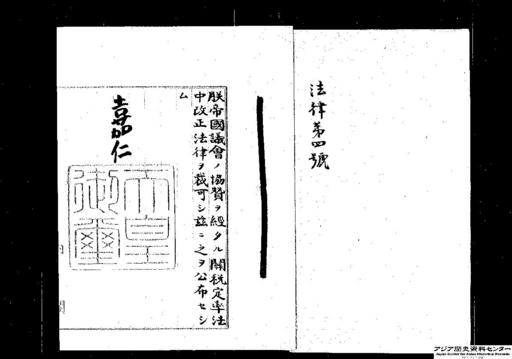 法律第四號
朕帝國議會ノ協賛ヲ經タル關税定率法
中改正法律ヲ裁可シ茲ニ之ヲ公布セシ
ム
嘉仁
天皇
御璽
アジア歴史資料センター
Japan Center for Asian Historical Records